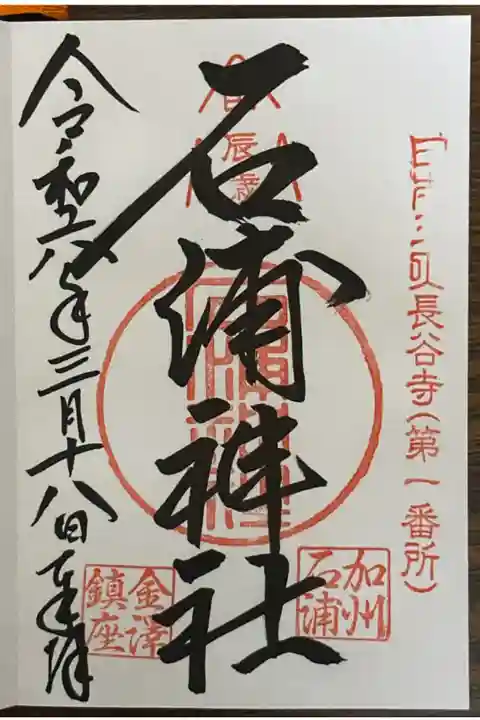 長谷寺(第一番所)
辰歳
石浦神社
加州
石浦
令和六年三月十八日奉拝
金澤
鎮座